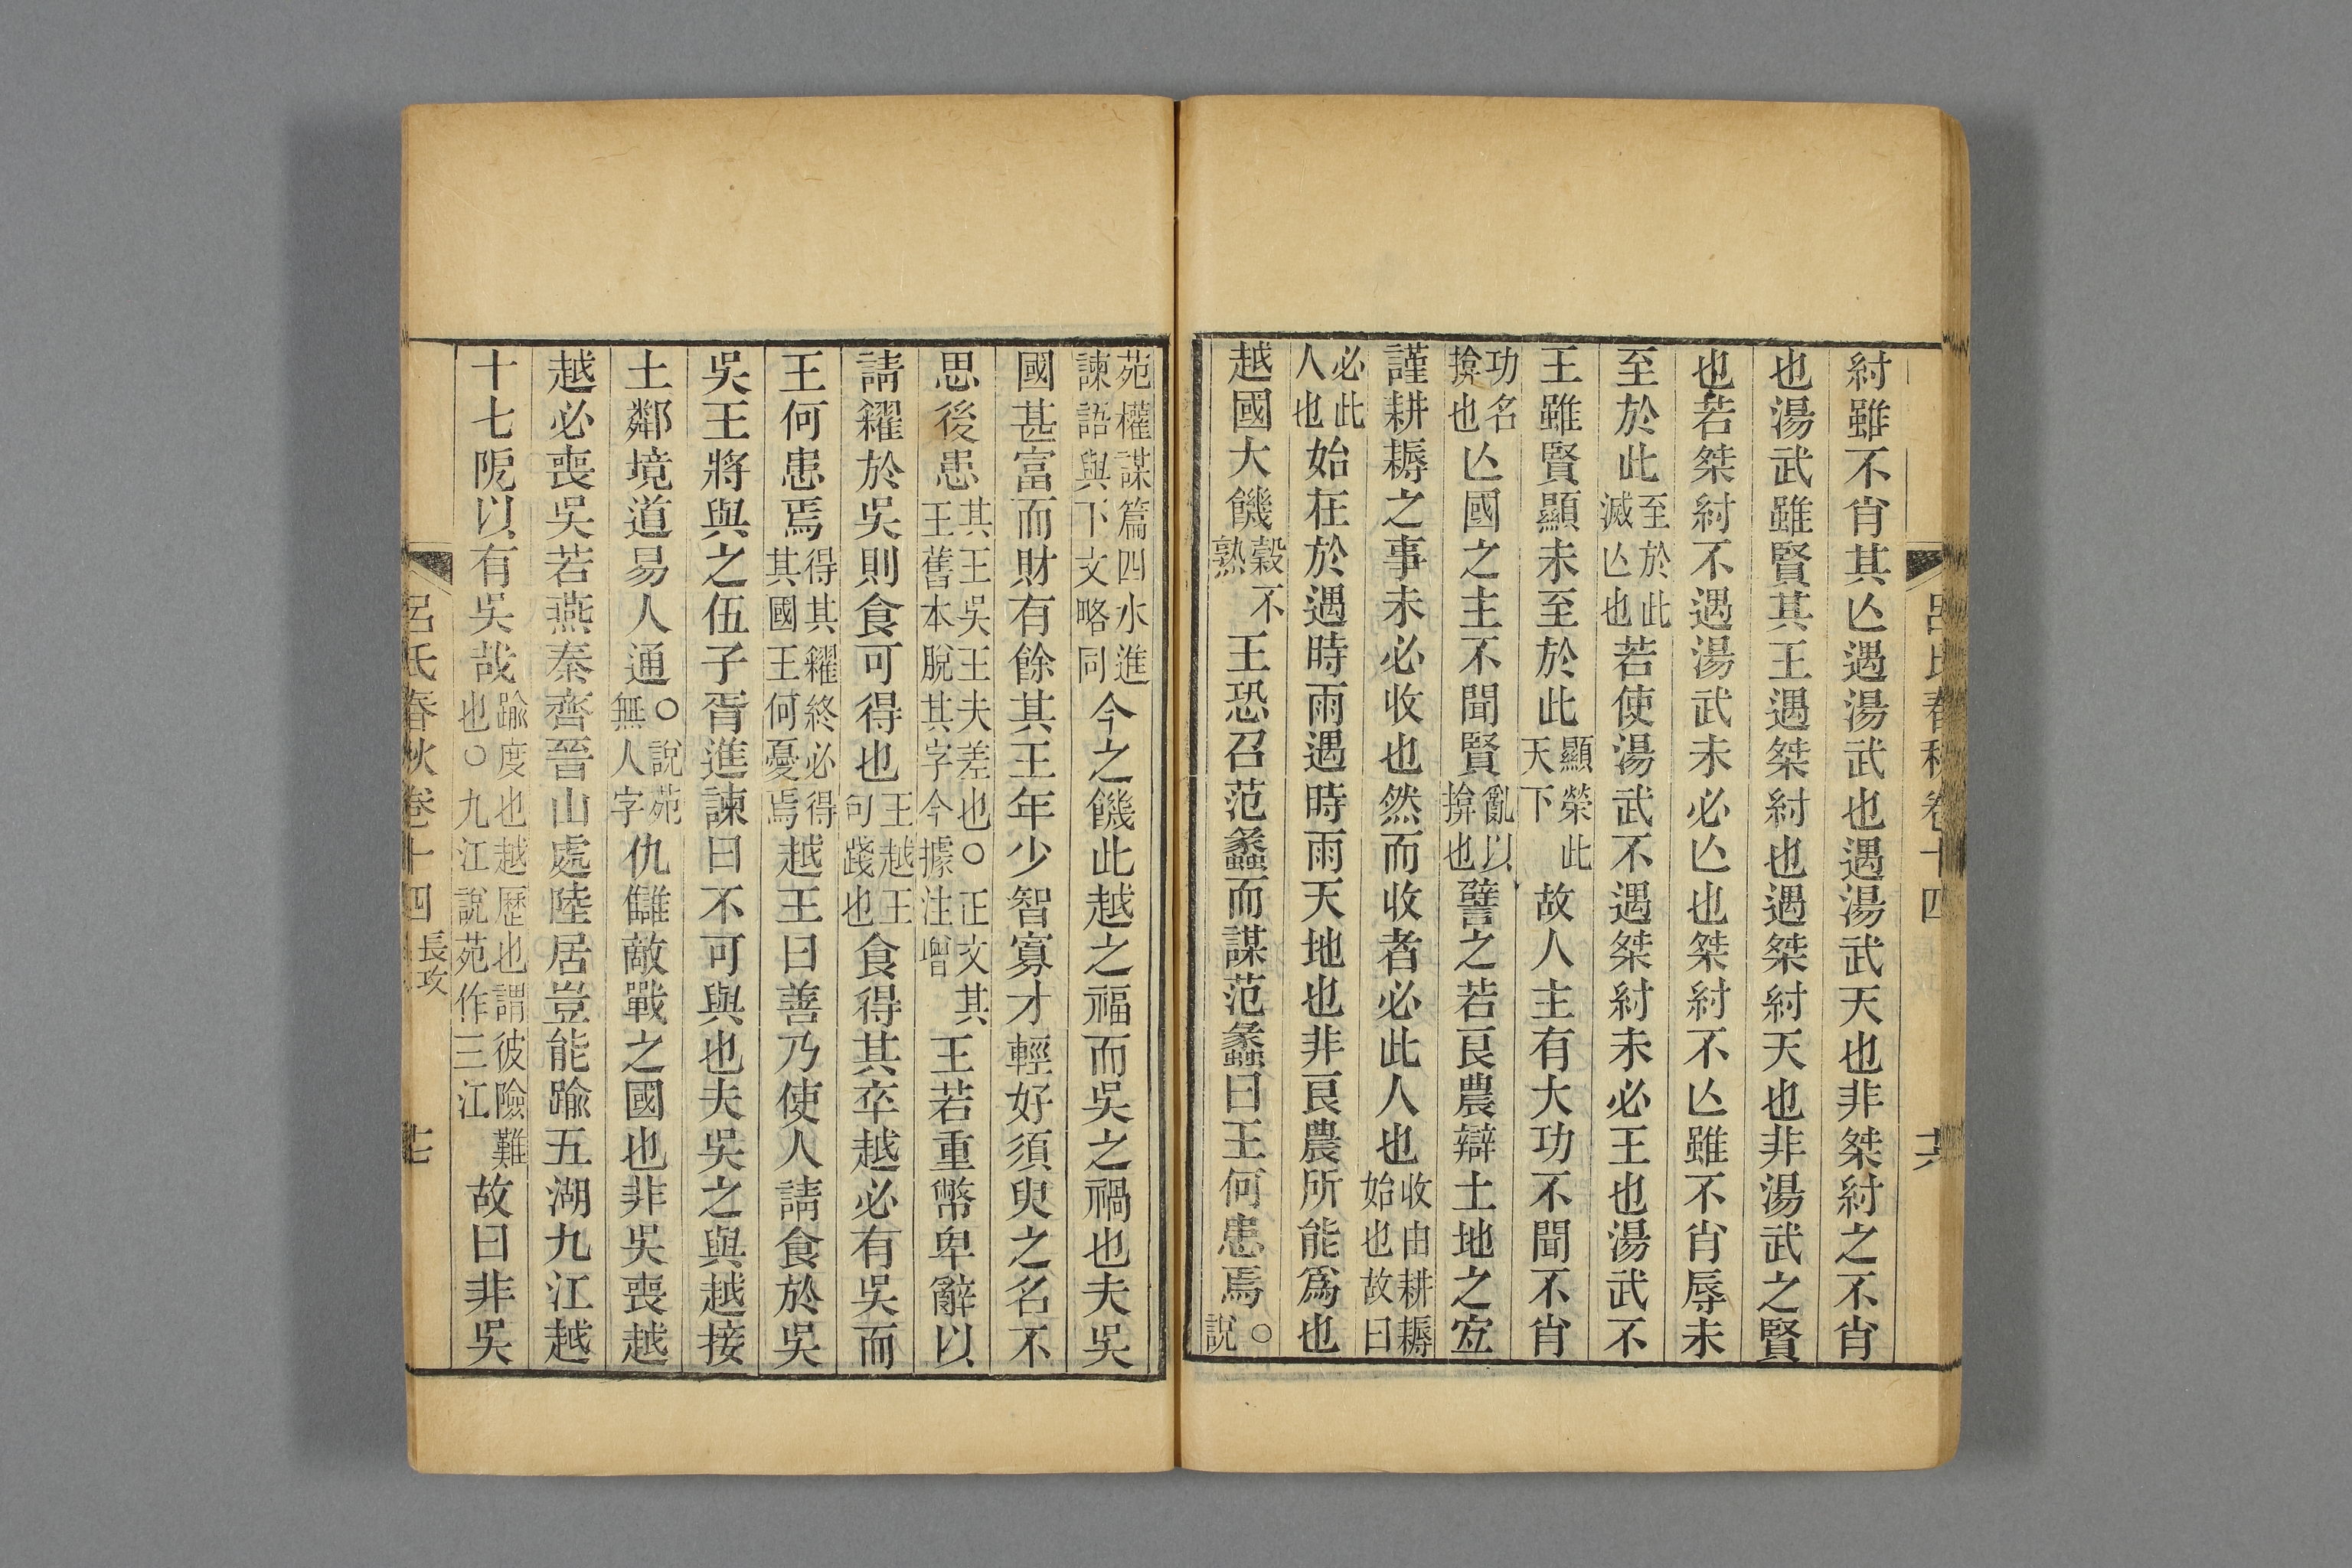 呂氏春秋卷十四 十六
紂雖不肖其亾遇湯武也遇湯武天也非桀紂之不肖
也湯武雖賢其王遇桀紂也遇桀紂天也非湯武之賢
也若桀紂不遇湯武未必亾也桀紂不亾雖不肖辱未
至於此至於此滅亾也若使湯武不遇桀紂未必王也湯武不
王雖賢顯未至於此顯榮此天下故人主有大功不聞不肖
功名揜也亾國之主不聞賢亂以揜也譬之若良農辯土地之宜
謹耕耨之事未必收也然而收者必此人也收由耕耨始也故曰
必此人也始在於遇時雨遇時雨天地也非良農所能爲也
越國大饑穀不熟王恐召范蠡而謀范蠡曰王何患焉○說
苑權謀篇四水進諫語與下文略同今之饑此越之福而吳之禍也夫吳
國甚富而財有餘其王年少智寡才輕好須臾之名不
思後患其王吳王夫差也○正文其王舊本脫其字今據注增王若重幣卑辭以
請糴於吳則食可得也王越王句踐也食得其卒越必有吳而
王何患焉得其糴終必得其國王何憂焉越王曰善乃使人請食於吳
吳王將與之伍子胥進諫曰不可與也夫吳之與越接
土鄰境道易人通○說苑無人字仇讎敵戰之國也非吳喪越
越必喪吳若燕秦齊晉山處陸居豈能踰五湖九江越
十七阨以有吳哉踰度也越歷也謂彼險難也○九江說苑作三江故曰非吳
呂氏春秋卷十四 長攻 十七